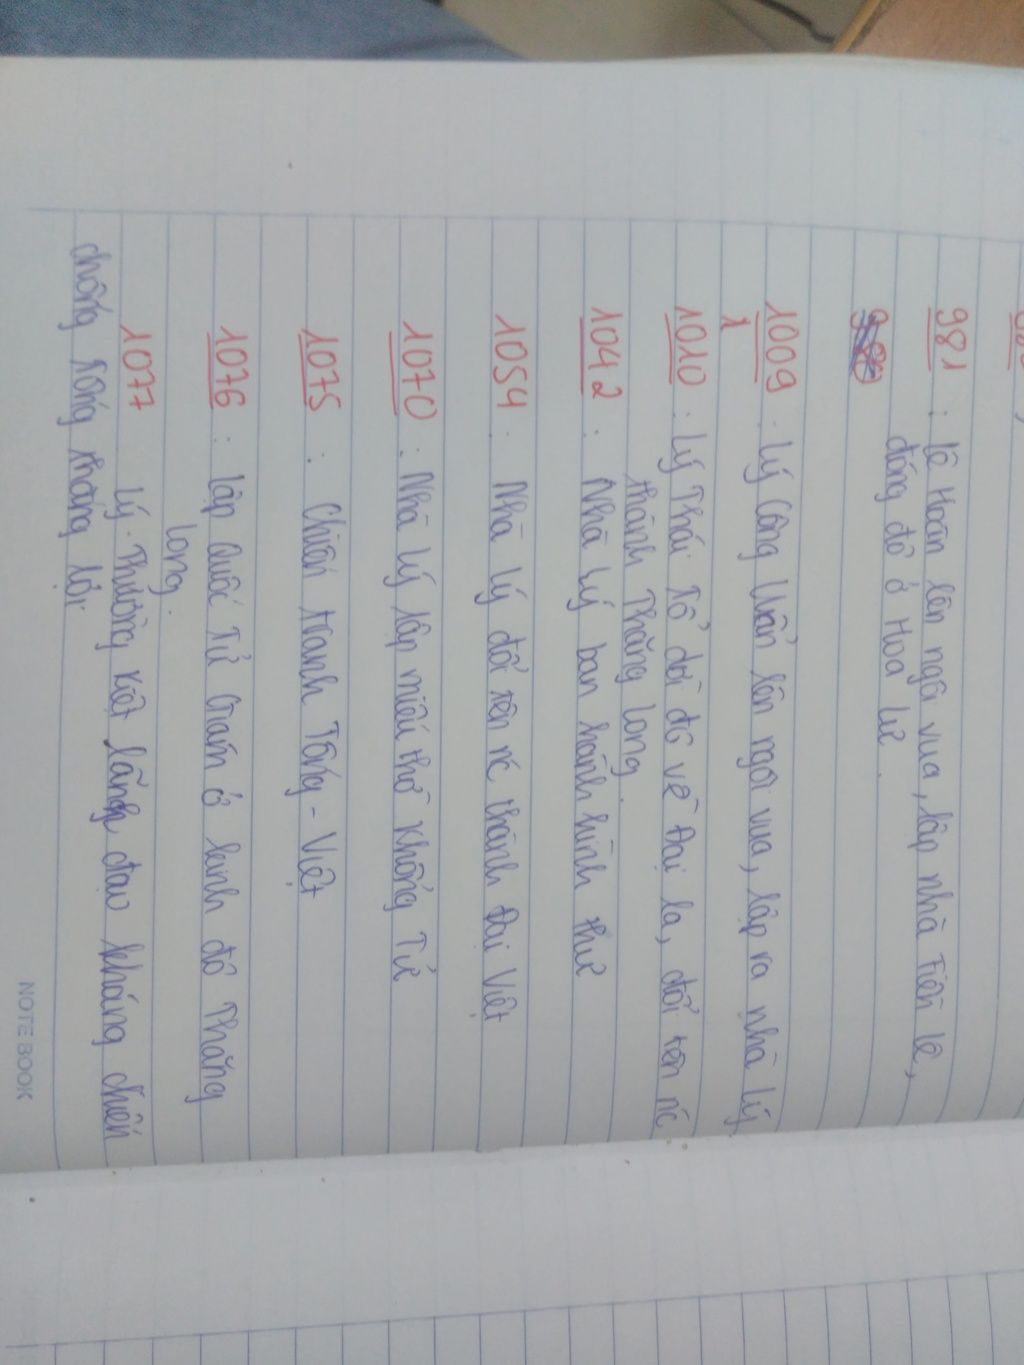 981 : Lê Hoàn lên ngôi vua, lập nhà Tiền Lê,
đóng đô ở Hoa Lư.
1009 : Lý Công Uẩn lên ngôi vua, lập ra nhà Lý
1010 : Lý Thái Tổ dời đô về Đại la, đổi tên nc
thành Thăng Long.
1042 : Nhà Lý ban hành hình thư
1054 : Nhà Lý đổi tên nc thành Đại Việt
1070 : Nhà Lý lập miếu thờ Khổng Tử
1075 : Chiến tranh Tống - Việt
1076 : lập Quốc Tử Giám ở kinh đô Thăng
Long.
1077 Lý Thường Kiệt lãnh đạo kháng chiến
chống Tống thắng lợi
NOTE BOOK